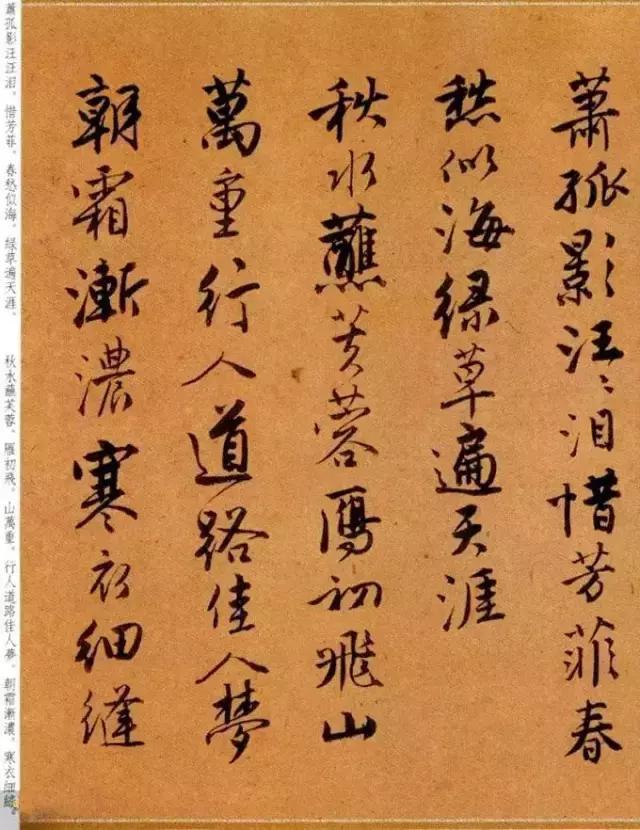 蕭孤影汪〻泪惜芳菲春
愁似海緑草遍天涯
秋水蘸芙蓉雁初飛山
萬重行人道路佳人夢
朝霜漸濃寒衣細縫
蕭孤影汪汪泪。惜芳菲。春愁似海。緑草遍天涯。 秋水蘸芙蓉。雁初飛。山萬重。行人道路佳人夢。朝霜漸濃。寒衣細縫。